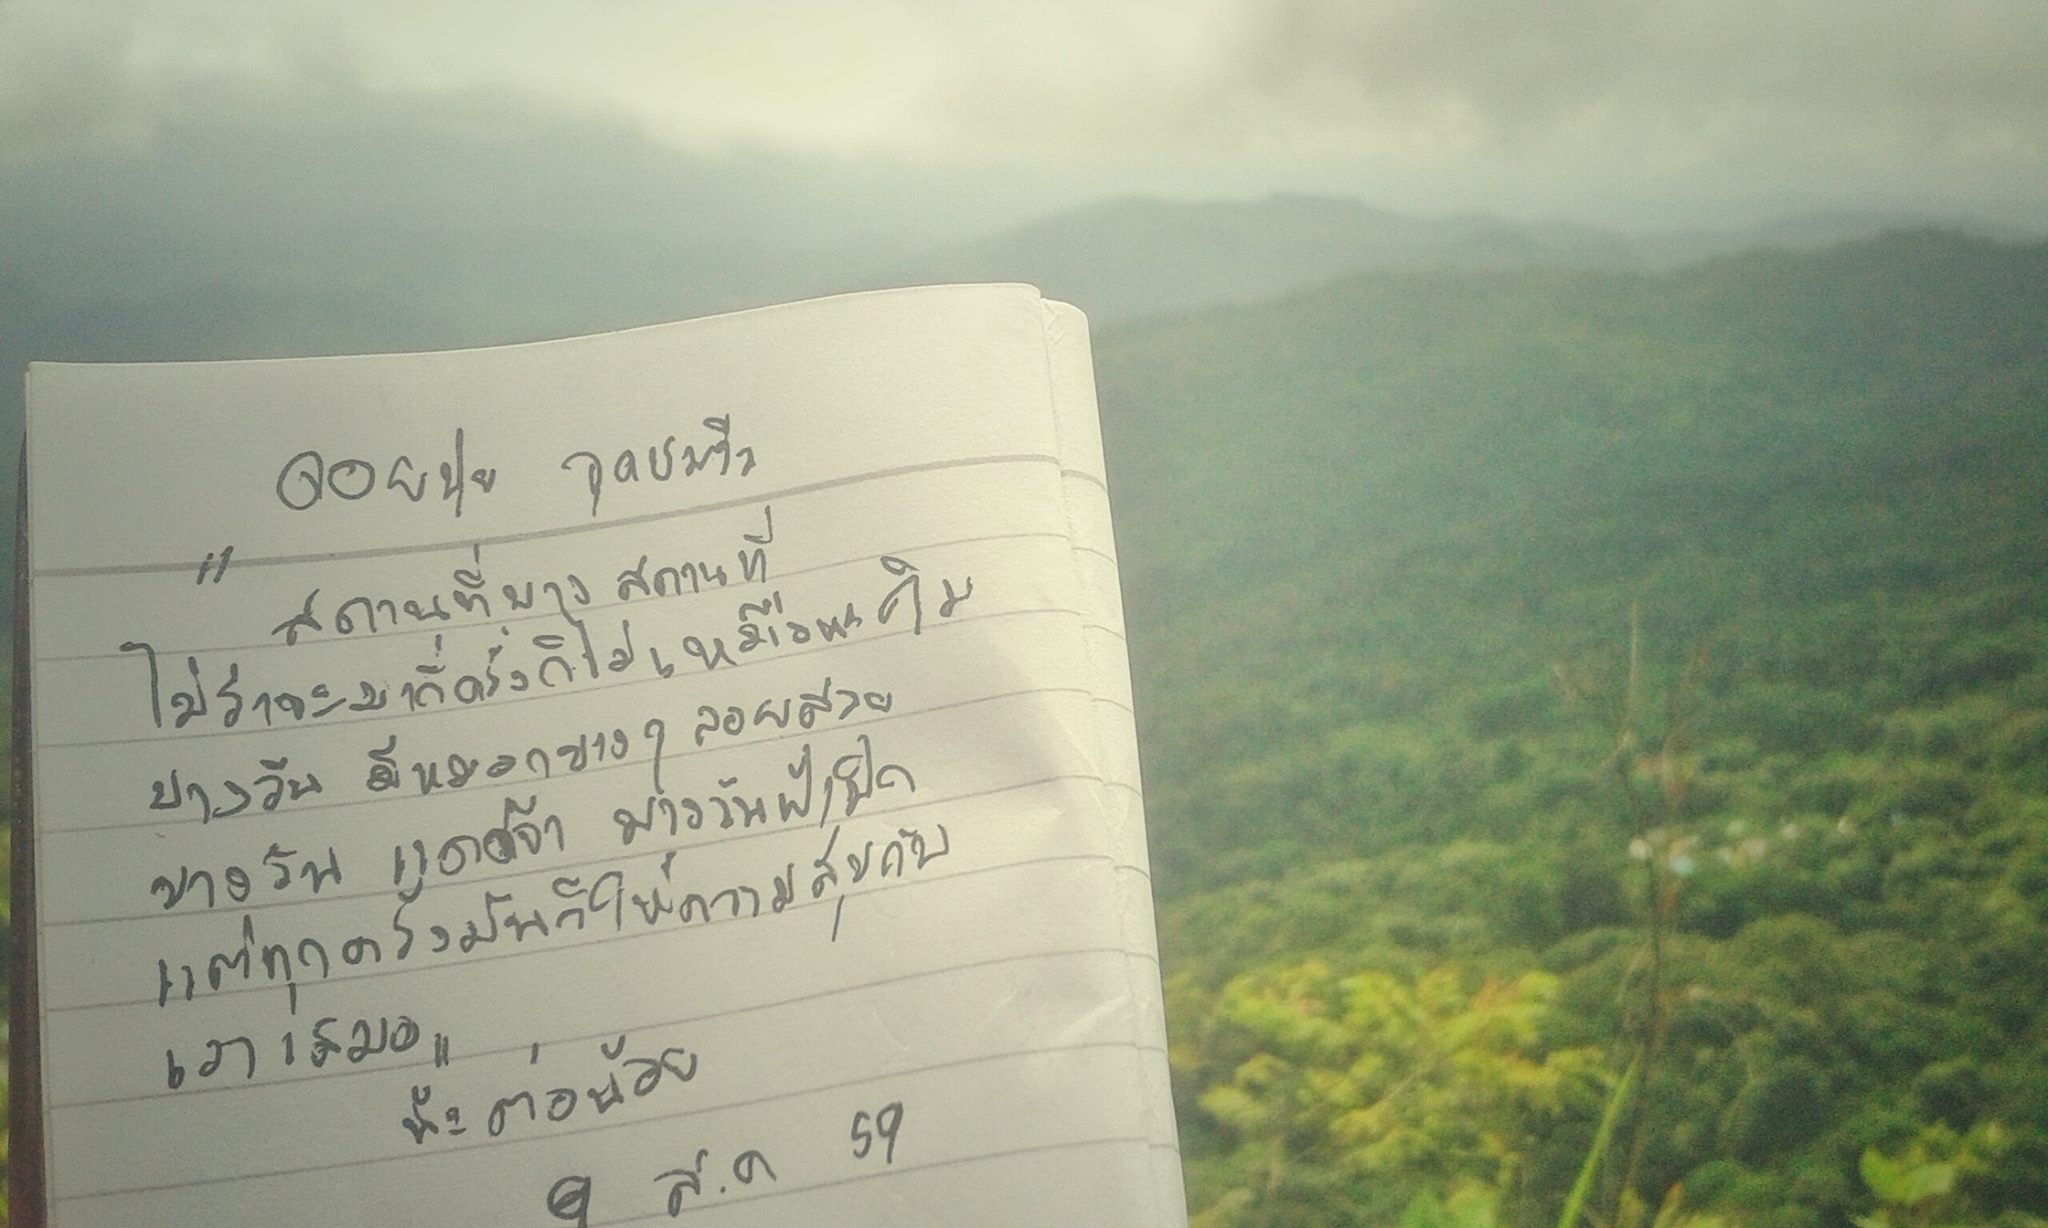 ดอยปุย จุดชมวิว
"สถานที่บาง สถานที่
ไม่ว่าจะมากี่ครั้งก็ไม่เหมือนเดิม
บางวัน มีหมอกบางๆ ลอยสวย
บางวัน แดดจ้า บางวันฟ้าปิด
แต่ทุกครั้งมันก็ให้ความสุขกับ
เราเสมอ"
น๊ะ ต่อน้อย
9 ส.ค 59